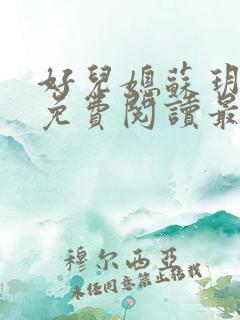 好兒媳蘇玥
免費閱讀最
穆尔西亚
未经同意禁止转载